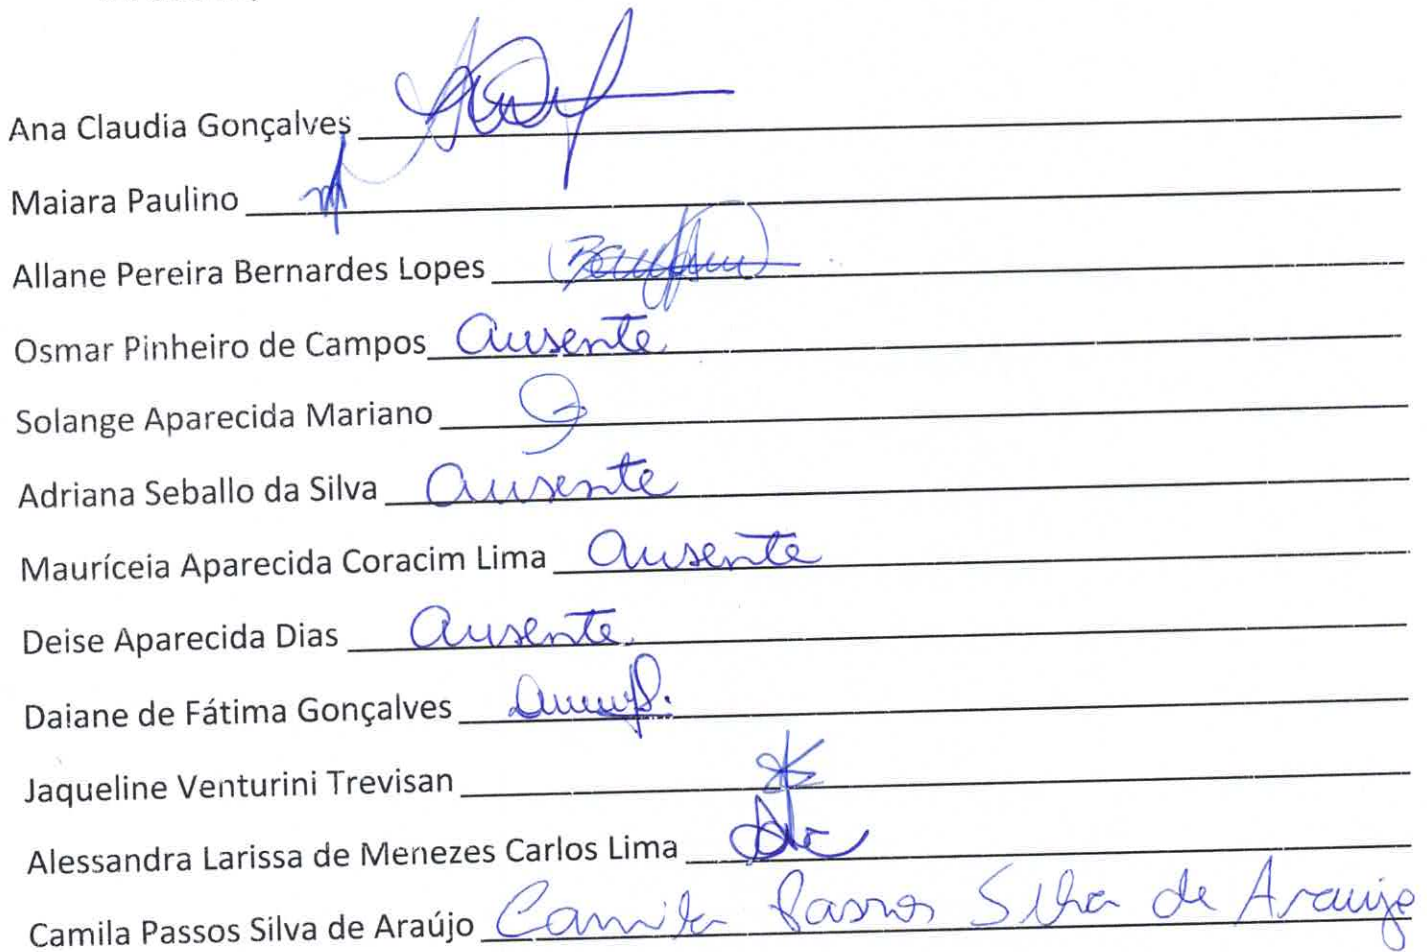 Ana Claudia Gonçalves
Maiara Paulino
Allane Pereira Bernardes Lopes
Osmar Pinheiro de Campos Ausente
Solange Aparecida Mariano
Adriana Seballo da Silva Ausente
Mauríceia Aparecida Coracim Lima Ausente
Deise Aparecida Dias Ausente.
Daiane de Fátima Gonçalves
Jaqueline Venturini Trevisan
Alessandra Larissa de Menezes Carlos Lima
Camila Passos Silva de Araújo Camila Passos Silva de Araujo